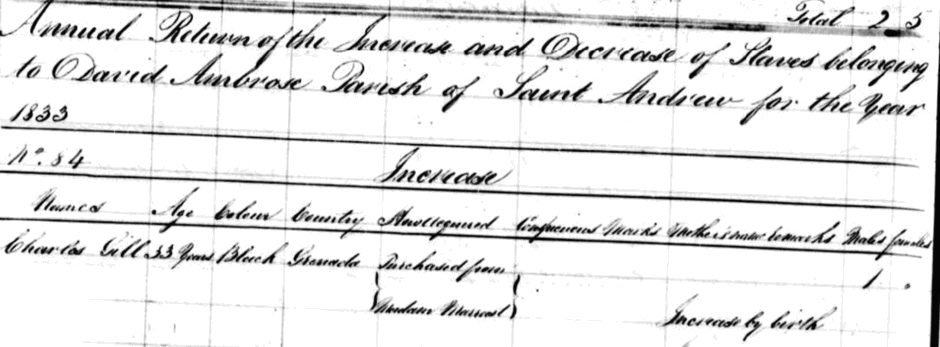 Total 2 3
Annual Return of the Increase and Decrease of Slaves belonging
to David Ambrose Parish of Saint Andrew for the Year
1833
No. 84
Increase
Names Age Colour Country How Acquired Conspicuous Marks Mothers name Remarks Males females
Charles Gill 33 Years Black Grenada Purchased from 1
Madam
Increase by birth